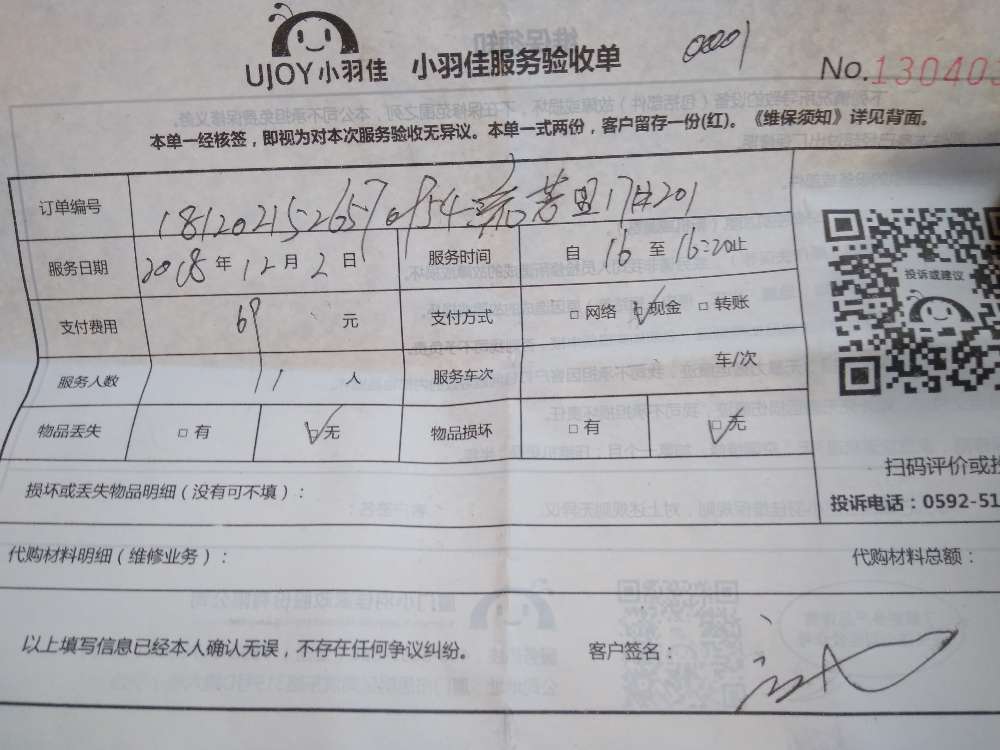 UJOY小羽佳 小羽佳服务验收单 0001
No.130403
本单一经核签，即视为对本次服务验收无异议。本单一式两份，客户留存一份(红)。《维保须知》详见背面。
订单编号 1812021526570954 17#201
服务日期 2018年12月2日 服务时间 自16至16:20止
支付费用 69 元 支付方式 □网络 ☑现金 □转账
服务人数 1 人 服务车次 车/次
物品丢失 □有 ☑无 物品损坏 □有 ☑无
投诉或建议
扫码评价或投
投诉电话：0592-51
损坏或丢失物品明细（没有可不填）：
代购材料明细（维修业务）： 代购材料总额：
以上填写信息已经本人确认无误，不存在任何争议纠纷。 客户签名：